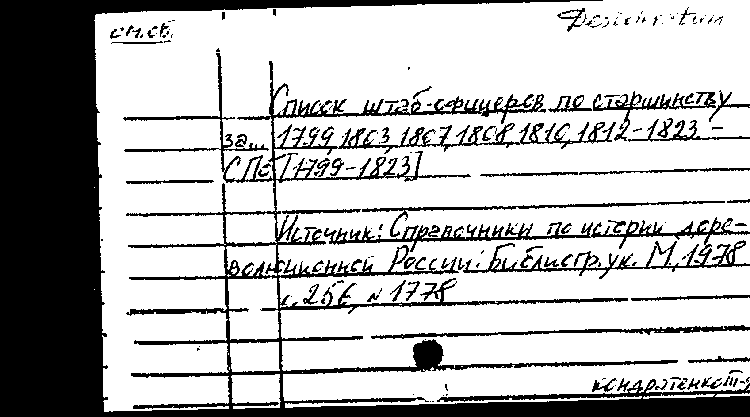 см.сб. Desideratum
Список штаб-офицеров по старшинству
за... 1799, 1803, 1807, 1808, 1810, 1812-1823. -
СПб [1799-1823]
Источник: Справочники по истории доре-
волюционной России: Библиогр. ук. М, 1978
с. 256, № 1778